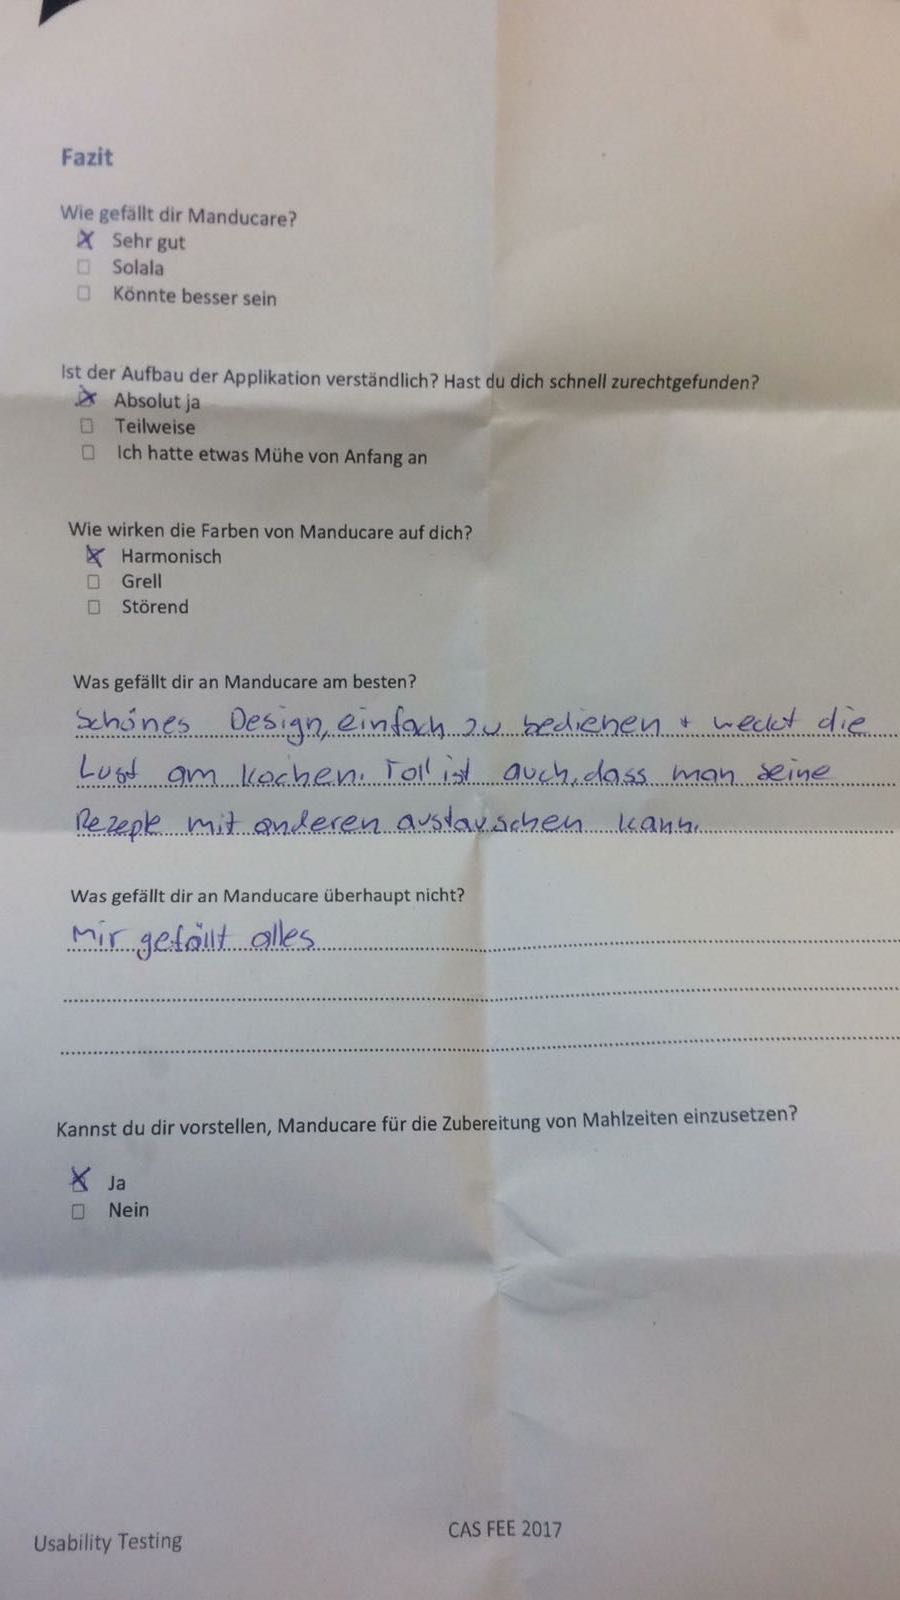 Fazit
Wie gefällt dir Manducare?
Sehr gut
Solala
Könnte besser sein
Ist der Aufbau der Applikation verständlich? Hast du dich schnell zurechtgefunden?
Absolut ja
Teilweise
Ich hatte etwas Mühe von Anfang an
Wie wirken die Farben von Manducare auf dich?
Harmonisch
Grell
Störend
Was gefällt dir an Manducare am besten?
Schönes Design, einfach zu bedienen + weckt die
Lust am Kochen. Toll ist auch, dass man seine
Rezepte mit anderen austauschen kann.
Was gefällt dir an Manducare überhaupt nicht?
Mir gefällt alles
Kannst du dir vorstellen, Manducare für die Zubereitung von Mahlzeiten einzusetzen?
Ja
Nein
Usability Testing CAS FEE 2017